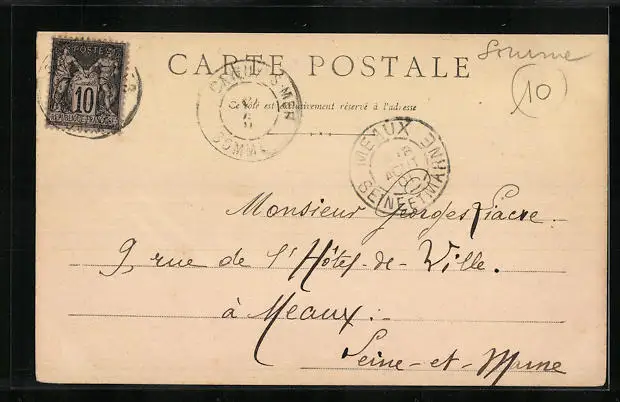 Somme
(10)
POSTE
10
CARTE POSTALE
Ce côté est exclusivement réservé à l'adresse
SOMME
MEAUX
AOUT
SEINE ET MARNE
Monsieur Georges Fiacre.
9 rue de l'Hôtel-de-Ville.
à Meaux.
Seine-et-Marne